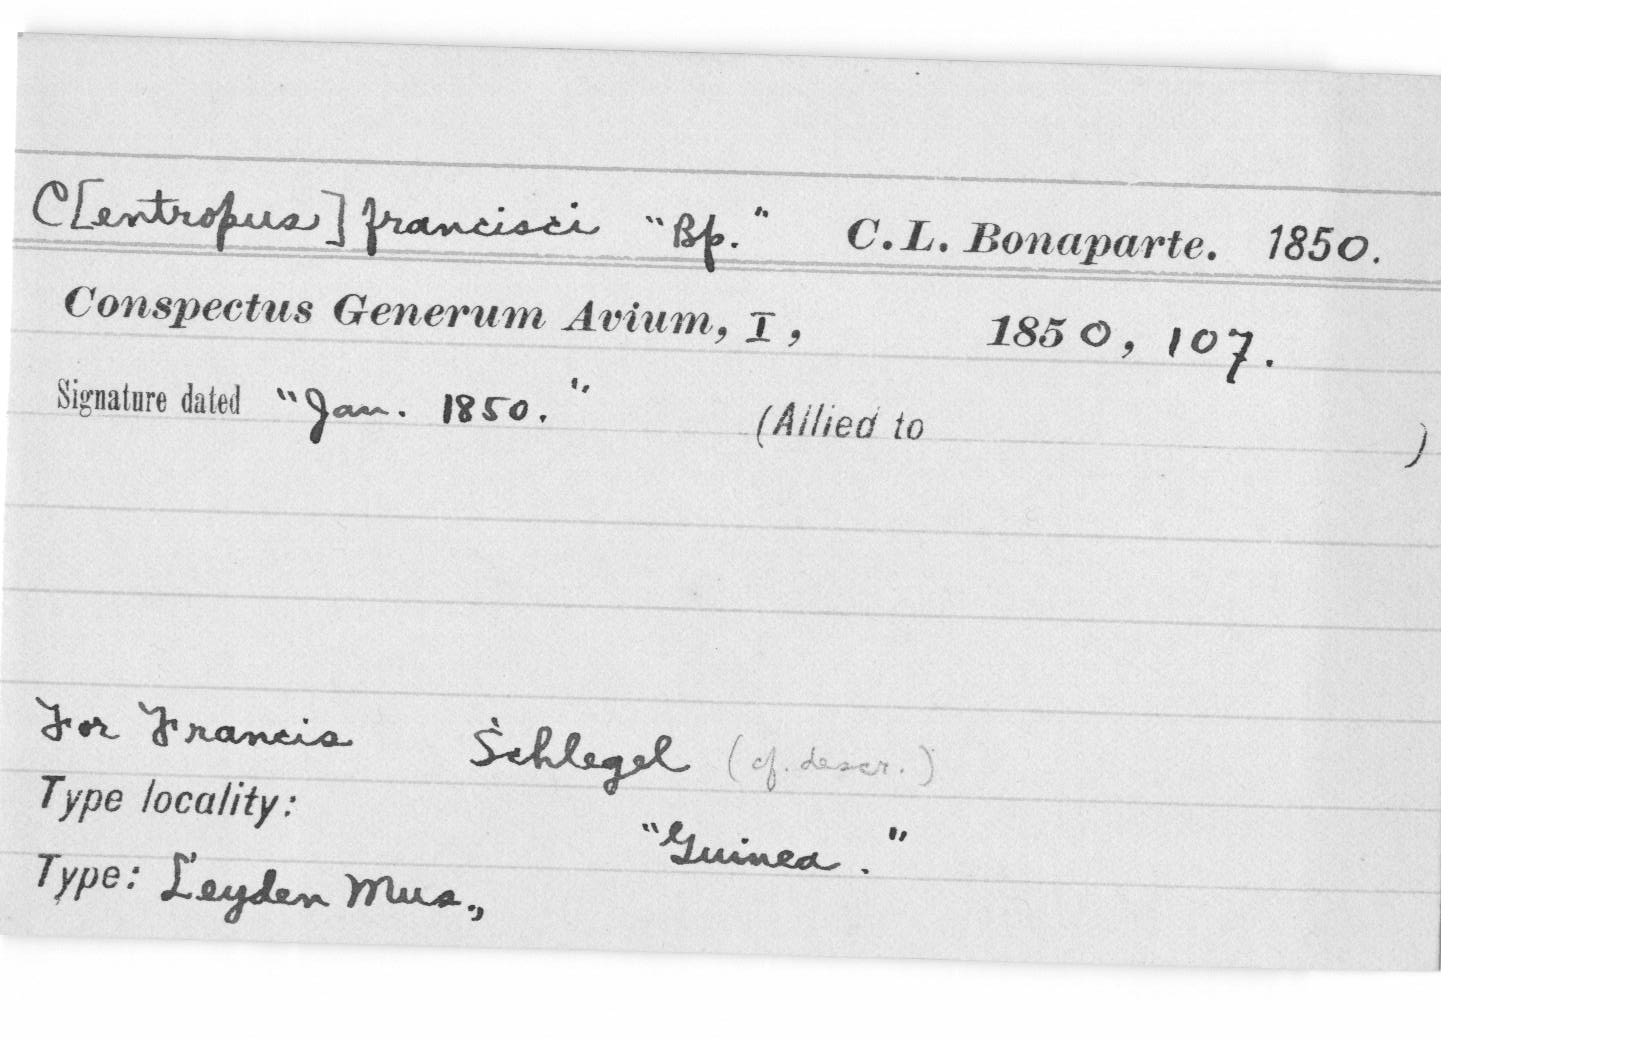 C[entropus] francisci "Bp." C.L. Bonaparte. 1850.
Conspectus Generum Avium, I, 1850, 107.
Signature dated "Jan. 1850." (Allied to )
For Francis Schlegel (cf. descr.)
Type locality: "Guinea."
Type: Leyden Mus.,